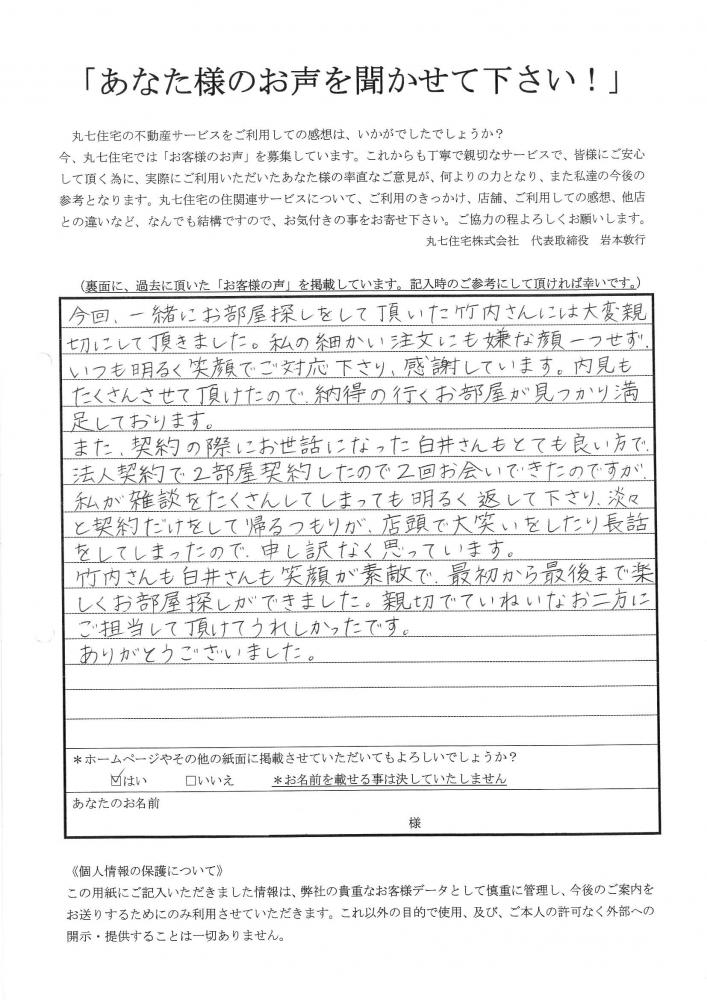 「あなた様のお声を聞かせて下さい！」
丸七住宅の不動産サービスをご利用しての感想は、いかがでしたでしょうか？
今、丸七住宅では「お客様のお声」を募集しています。これからも丁寧で親切なサービスで、皆様にご安心
して頂く為に、実際にご利用いただいたあなた様の率直なご意見が、何よりの力となり、また私達の今後の
参考となります。丸七住宅の住関連サービスについて、ご利用のきっかけ、店舗、ご利用しての感想、他店
との違いなど、なんでも結構ですので、お気付きの事をお寄せ下さい。ご協力の程よろしくお願いします。
丸七住宅株式会社　代表取締役　岩本敦行
（裏面に、過去に頂いた「お客様の声」を掲載しています。記入時のご参考にして頂ければ幸いです。）
今回、一緒にお部屋探しをして頂いた竹内さんには大変親
切にして頂きました。私の細かい注文にも嫌な顔一つせず、
いつも明るく笑顔でご対応下さり、感謝しています。内見も
たくさんさせて頂けたので、納得の行くお部屋が見つかり満
足しております。
また、契約の際にお世話になった白井さんもとても良い方で、
法人契約で2部屋契約したので2回お会いできたのですが、
私が雑談をたくさんしてしまっても明るく返して下さり、淡々
と契約だけをして帰るつもりが、店頭で大笑いをしたり長話
をしてしまったので、申し訳なく思っています。
竹内さんも白井さんも笑顔が素敵で、最初から最後まで楽
しくお部屋探しができました。親切でていねいなお二方に
ご担当して頂けてうれしかったです。
ありがとうございました。
＊ホームページやその他の紙面に掲載させていただいてもよろしいでしょうか？
☑はい　□いいえ　＊お名前を載せる事は決していたしません
あなたのお名前
様
《個人情報の保護について》
この用紙にご記入いただきました情報は、弊社の貴重なお客様データとして慎重に管理し、今後のご案内を
お送りするためにのみ利用させていただきます。これ以外の目的で使用、及び、ご本人の許可なく外部への
開示・提供することは一切ありません。